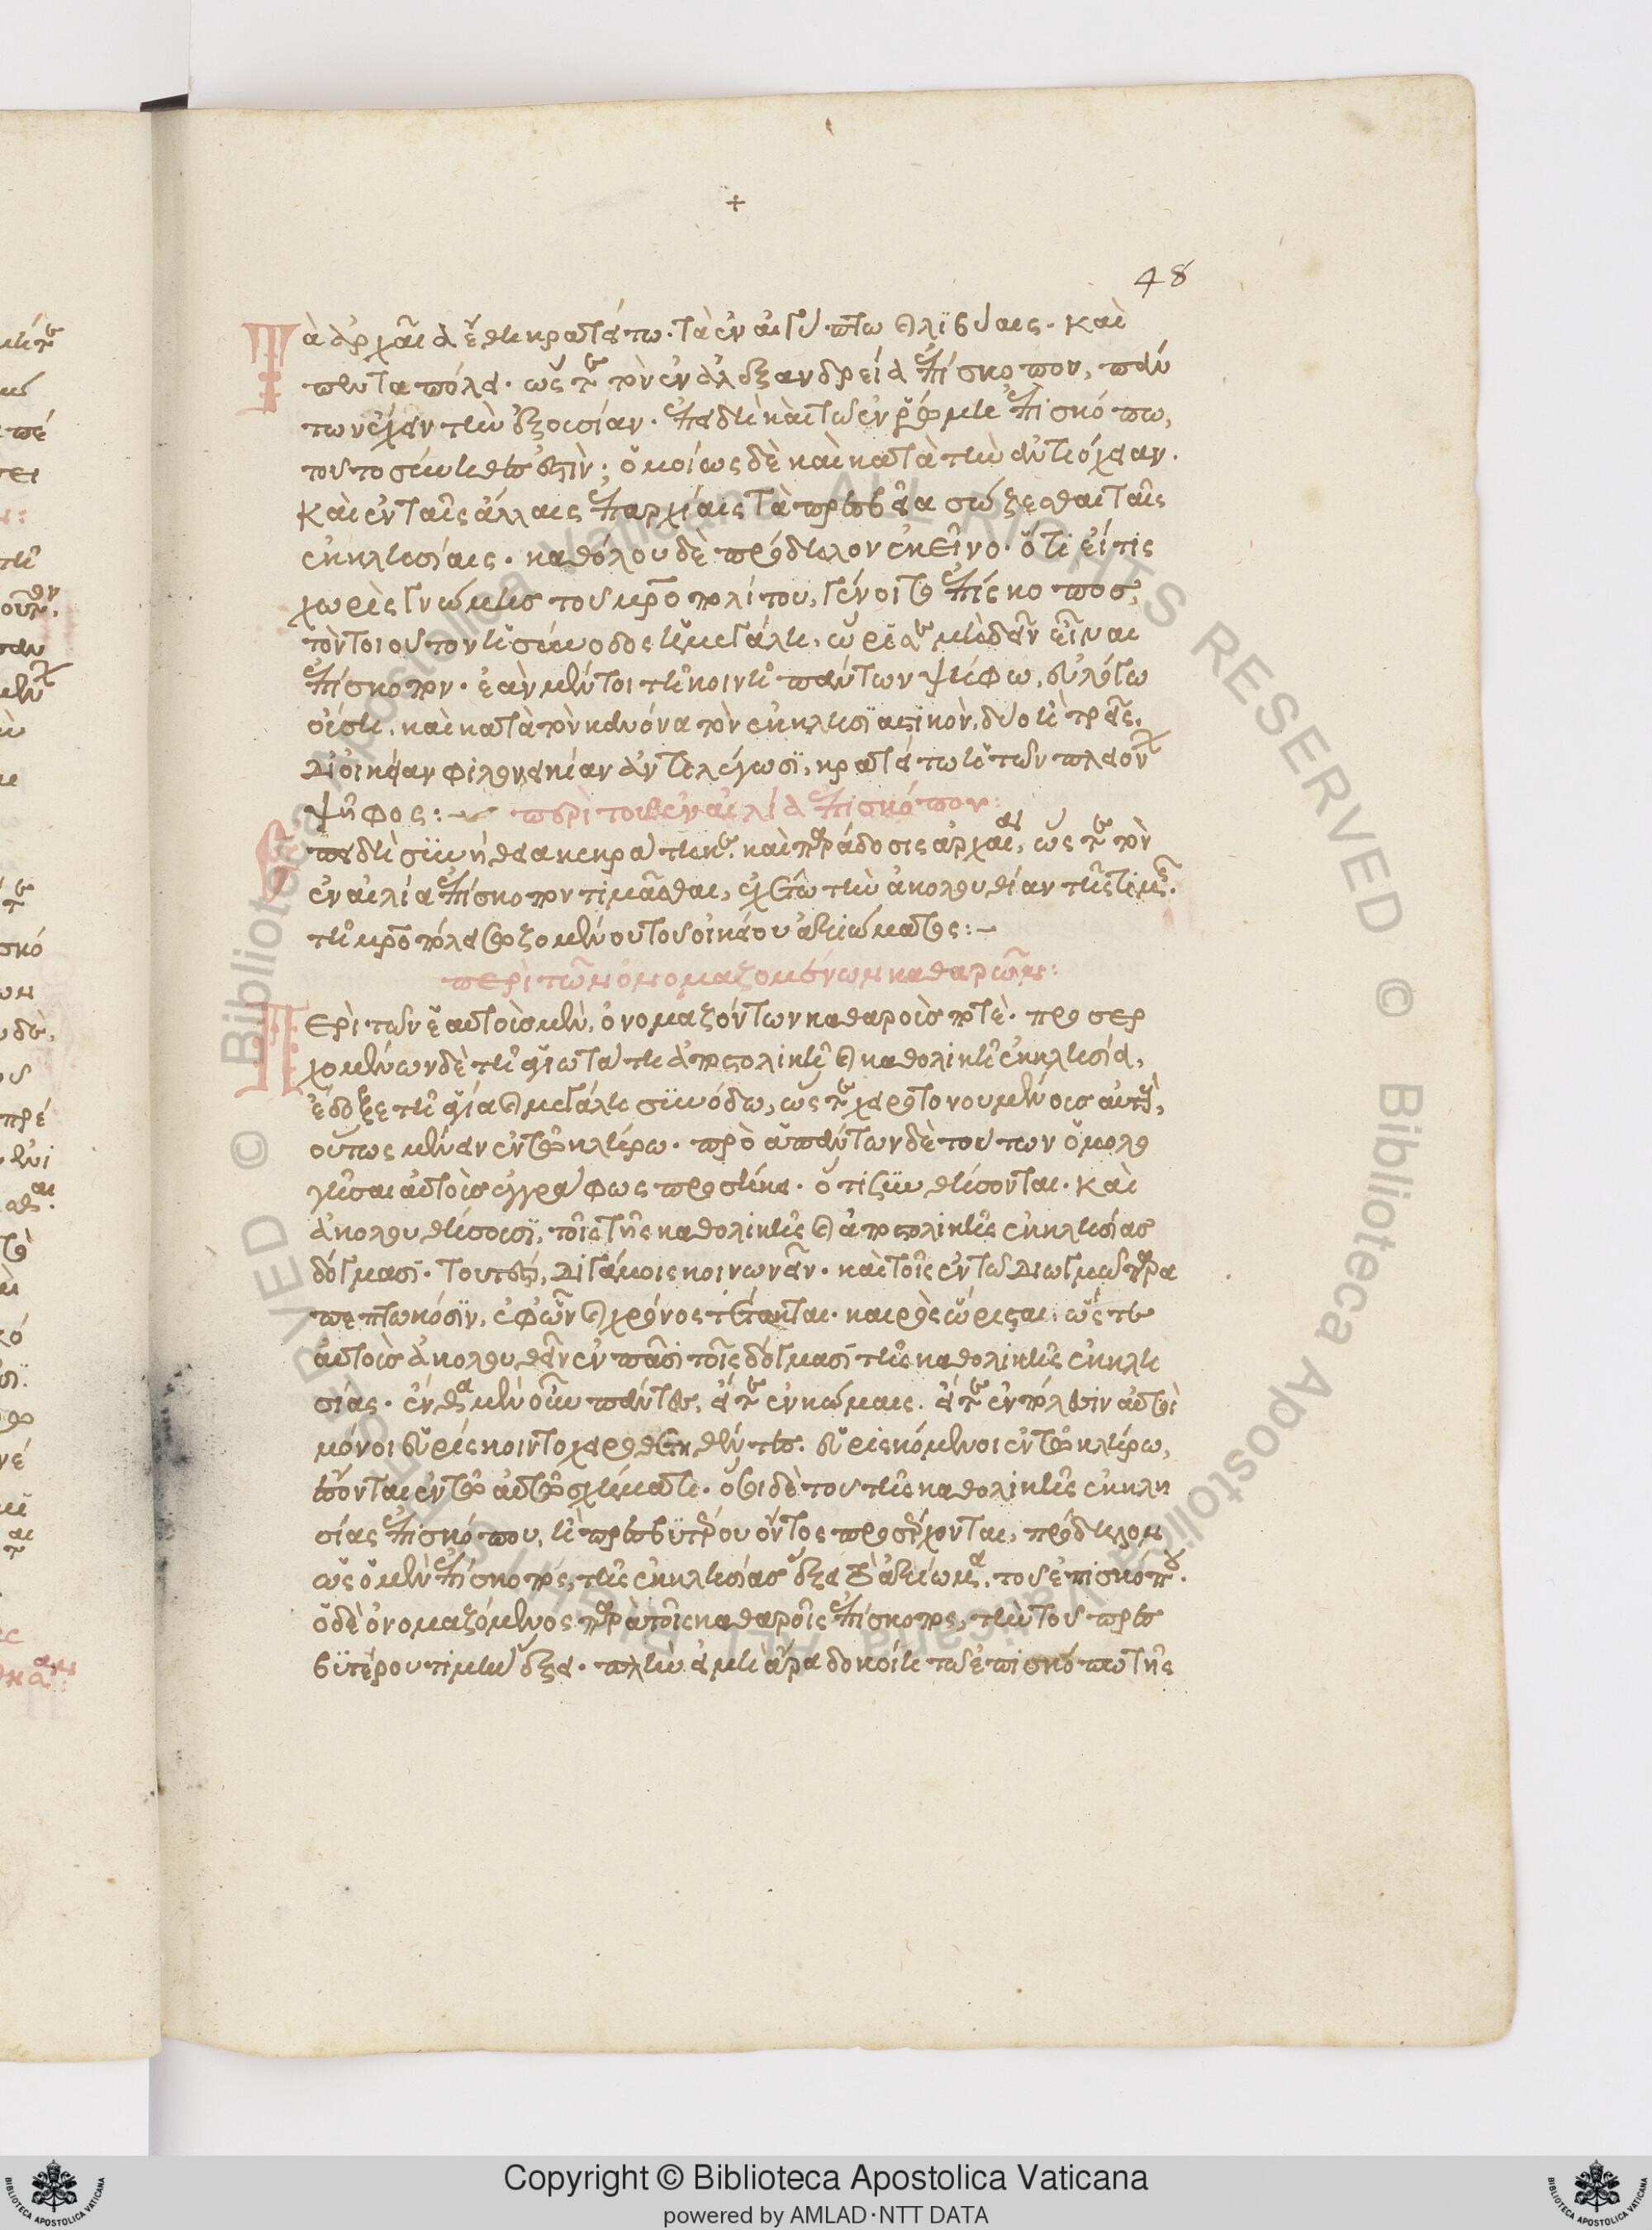 +
48
Τὰ ἀρχαῖα ἔθη κρατείτω. τὰ ἐν αἰγύπτω καὶ λϊβύαις. καὶ
πενταπόλει. ὥστε τὸν ἐν ἀλεξανδρεία ἐπίσκοπον, πάν
των ἔχειν τὴν ἐξουσίαν. ἐπειδὴ καὶ τῶ ἐν ῥώμη ἐπισκόπω,
τοῦτο σύνηθες ἐστὶν; ὁμοίως δὲ καὶ κατὰ τὴν ἀντιόχειαν.
Καὶ ἐν ταῖς ἄλλαις ἐπαρχίαις τὰ πρεσβεῖα σώζεσθαι ταῖς
ἐκκλησίαις. καθόλου δὲ πρόδηλον ἐκεῖνο. ὅτι εἴ τις
χωρὶς γνώμης τοῦ μητροπολίτου, γένοιτο ἐπίσκοπος,
τὸν τοιοῦτον ἡ σύνοδος ἡ μεγάλη, ὥρισε μὴ δεῖν εἶναι
ἐπίσκοπον. ἐὰν μέντοι τῆ κοινῆ πάντων ψήφω, εὐλόγω
οὔση, καὶ κατὰ τὸν κανόνα τὸν ἐκκλησϊαστικὸν, δύο ἢ τρεῖς,
δι᾽ οἰκείαν φιλονεικίαν ἀντιλέγωσϊ, κρατείτω ἡ τῶν πλειόνων
ψῆφος:
περὶ τοῦ ἐν αἰλία ἐπισκόπου:
Ἐπειδὴ σϋνήθεια κεκράτηκε. καὶ παράδοσις ἀρχαία, ὥστε τὸν
ἐν αἰλία ἐπίσκοπον τιμᾶσθαι, ἐχέτω τὴν ἀκολουθίαν τῆς τιμῆς.
τῆ μητροπόλει σωζομένου τοῦ οἰκείου ἀξιώματος:
περὶ τῶν ὀνομαζομένων καθαρῶν:
Περὶ τῶν ἑαυτοὺς μὲν, ὀνομαζόντων καθαροὺς ποτὲ. προσερ
χομένων δὲ τῆ ἁγιωτάτη ἀποστολικῆ καὶ καθολικῆ ἐκκλησία,
ἔδοξε τῆ ἁγία καὶ μεγάλη σϋνόδω, ὥστε χειροτονουμένους αὐτοὺς,
οὕτως μένειν ἐν τῶ κλήρω. πρὸ ἁπάντων δὲ τούτων ὁμολο
γῆσαι αὐτοὺς ἐγγράφως προσήκει. ὅτι συνθήσονται. Καὶ
ἀκολουθήσουσϊ, τοῖς τῆς καθολικῆς καὶ ἀποστολικῆς ἐκκλησίας
δόγμασϊ. τουτέστι, διγάμοις κοινωνεῖν. καὶ τοῖς ἐν τῶ διωγμῶ παρα
πεπτωκόσϊν, ἐφ᾽ ὧν καὶ χρόνος τέτακται. καιρὸς ὥρισται, ὥστε
αὐτοὺς ἀκολουθεῖν ἐν πᾶσϊ τοῖς δόγμασϊ τῆς καθολικῆς ἐκκλη
σίας. ἔνθα μὲν οὖν πάντες, εἴτε ἐν κώμαις. εἴτε ἐν πόλεσιν αὐτοὶ
μόνοι εὑρίσκοιντο χειροτονηθέντες. εὑρισκόμενοι ἐν τῶ κλήρω,
ἔσονται ἐν τῶ αὐτῶ σχήματι. ὅσοι δὲ τοῦ τῆς καθολικῆς ἐκκλη
σίας ἐπισκόπου, ἢ πρεσβϋτέρου ὄντος προσέρχονται, πρόδηλον
ὡς ὁ μὲν ἐπίσκοπος, τῆς ἐκκλησίας ἕξει τὸ ἀξίωμα. τοῦ ἐπισκόπου.
ὁ δὲ ὀνομαζόμενος παρὰ τοῖς καθαροῖς ἐπίσκοπος, τὴν τοῦ πρεσ
βϋτέρου τιμὴν ἕξει. πλὴν εἰ μὴ ἄρα δοκοίη τῶ ἐπισκόπω τῆς
Copyright © Biblioteca Apostolica Vaticana
powered by AMLAD·NTT DATA